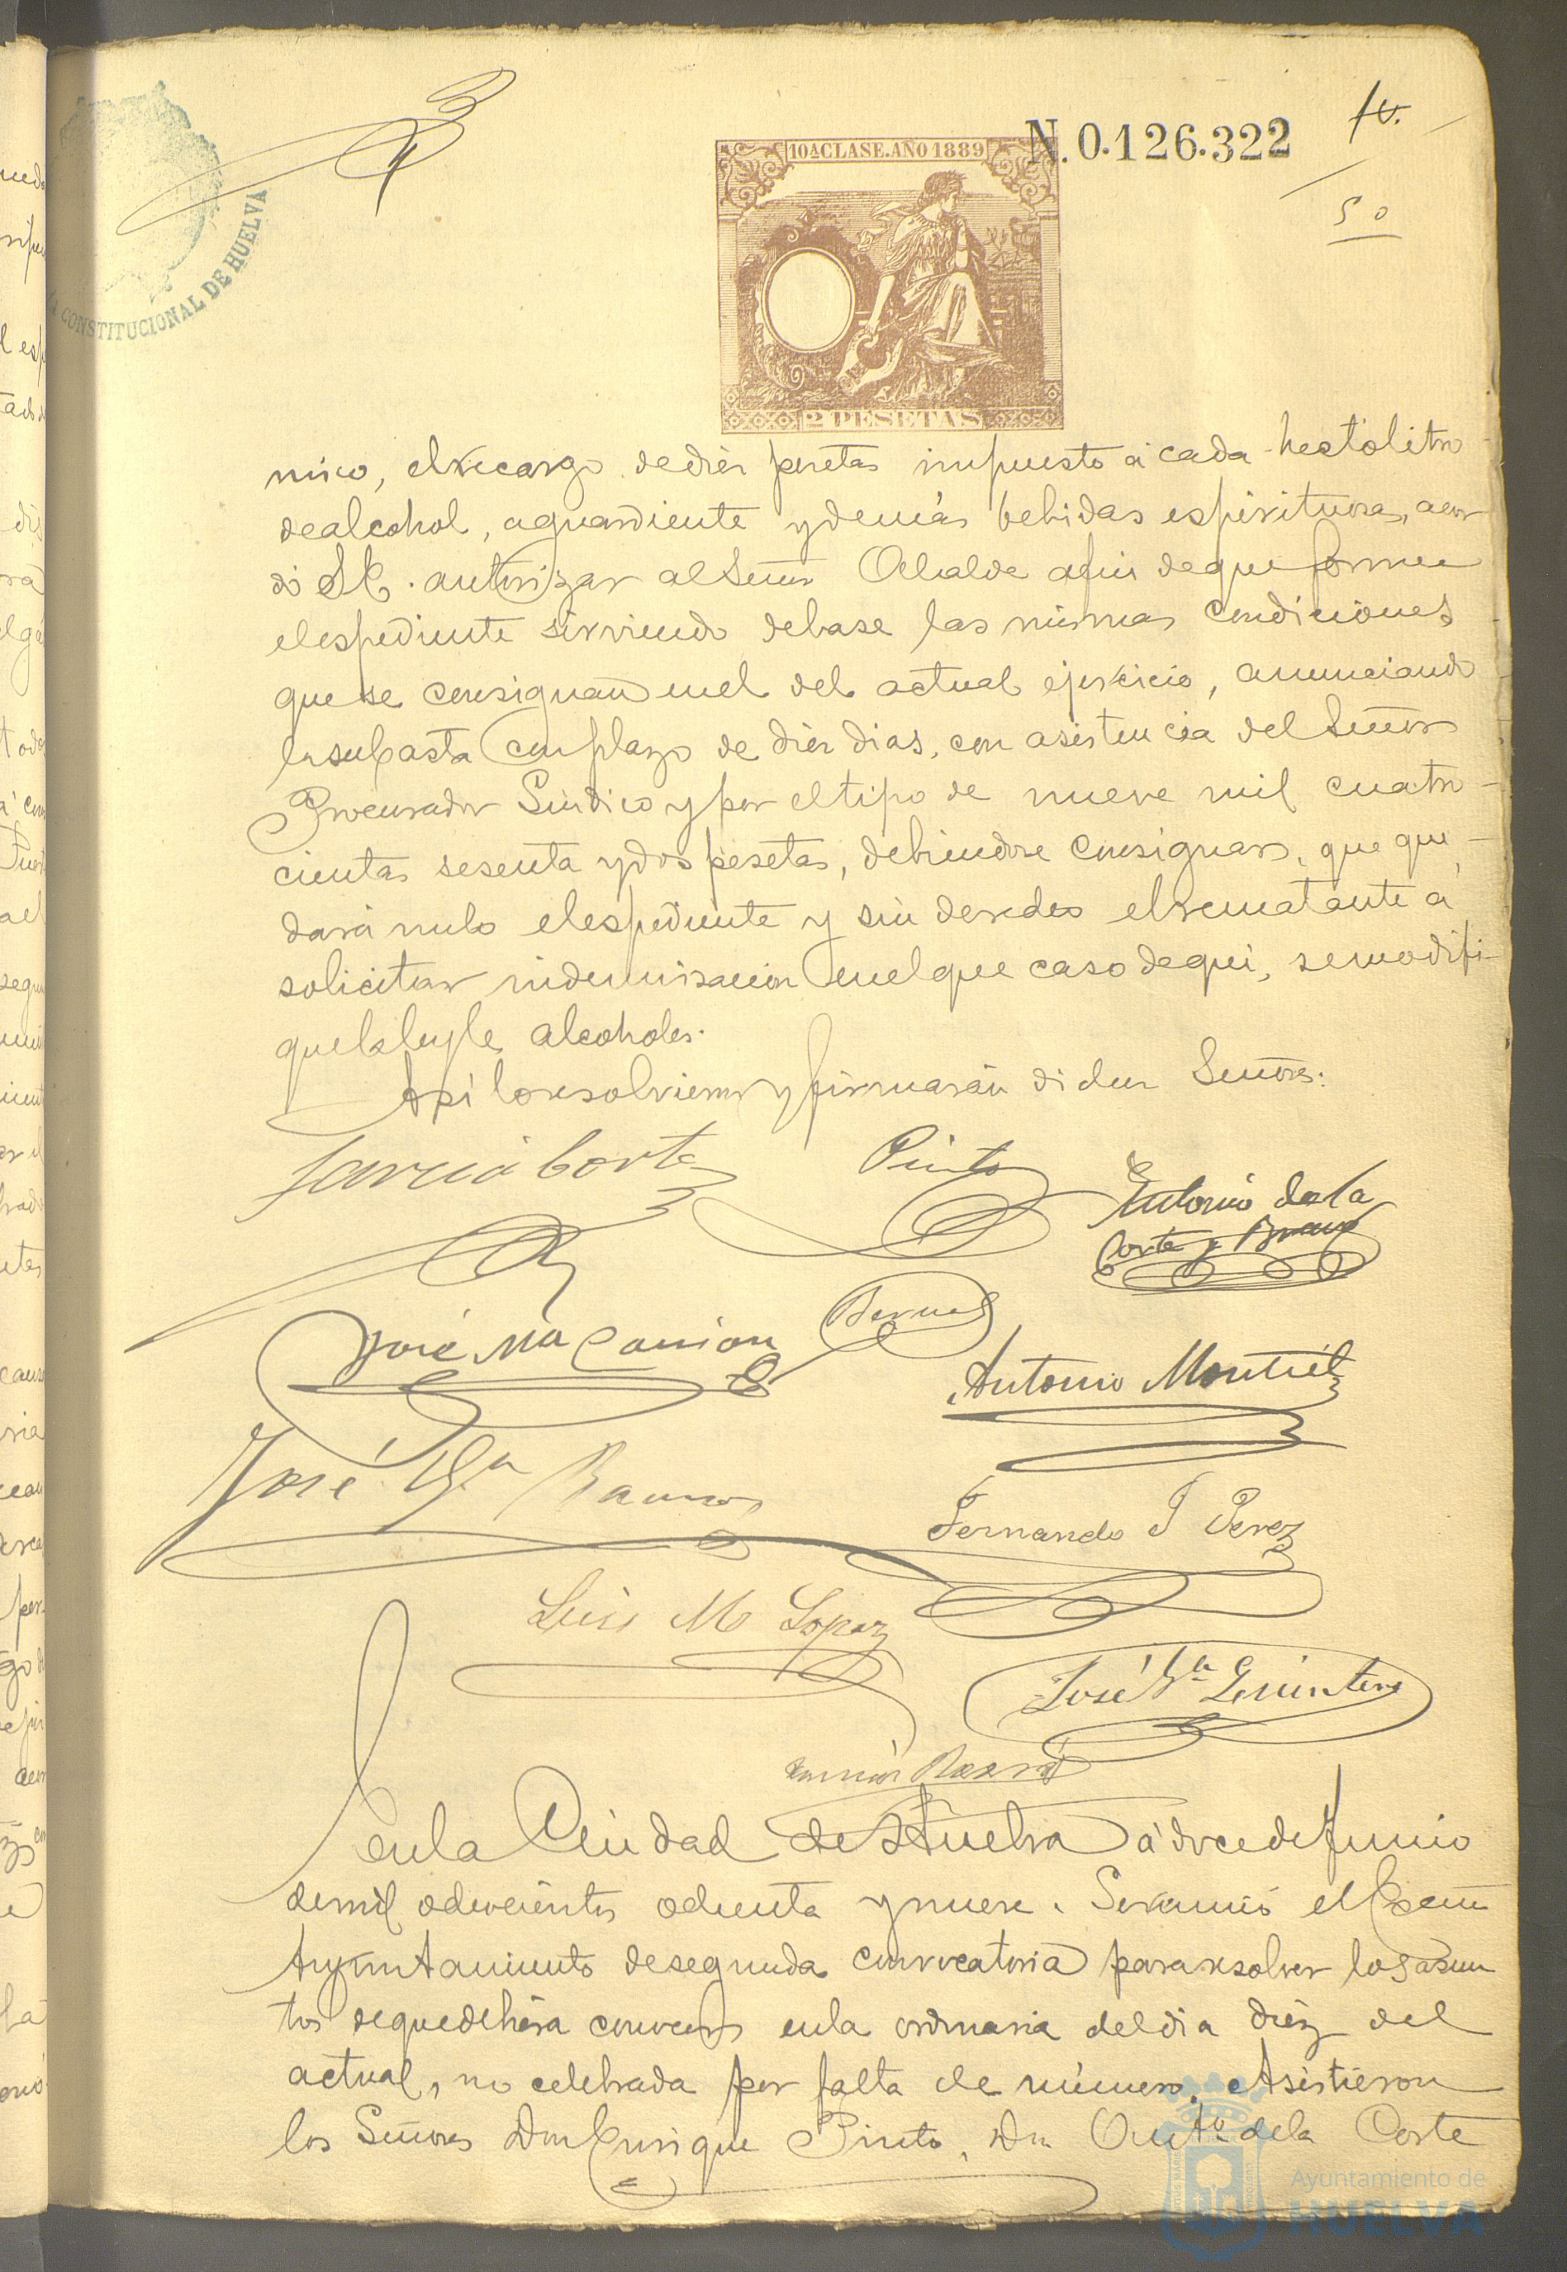 N. 0.126.322
10ª CLASE. AÑO 1889
50
CONSTITUCIONAL DE HUELVA
2 PESETAS
mico, el recargo de diez pesetas impuesto á cada hectólitro
de alcohol, aguardiente y demás bebidas espirituosas, acor
dó S.E. autorizar al Señor Alcalde a fin de que forme
el espediente sirviendo de base las mismas condiciones
que se consignan en el del actual ejercicio, anunciando
la subasta con plazo de diez dias, con asistencia del Señor
Procurador Sindico y por el tipo de nueve mil cuatro-
cientas sesenta y dos pesetas, debiendose consignar, que que-
dará nulo el espediente y sin derecho el rematante á
solicitar indemnisacion en el que caso de que, se modifi-
que la ley de alcoholes.
Asi lo resolvieron y firmarán dichos Señores.
Garcia Cortes
Pinto
Antonio de la
Corte y Bravo
Bernal
José Mª Carrion
Antonio Montiel
José Mª Ramos
Fernando J Perez
Luis M Lopez
José Mª Quintero
En la Ciudad de Huelva á doce de Junio
de mil ochocientos ochenta y nueve. Se reunió el Excmo
Ayuntamiento de segunda convocatoria para resolver los asun
tos de que debiera conocer en la ordinaria del dia diez del
actual, no celebrada por falta de número. Asistieron
los Señores Don Enrique Pinto, Dn Antº de la Corte
Ayuntamiento de
HUELVA